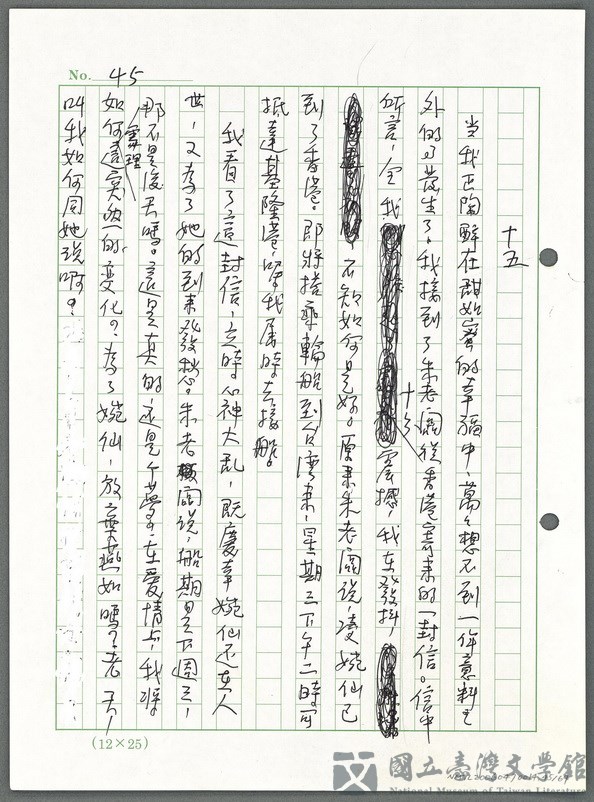 No. 45
十五
當我正陶醉在甜如蜜的幸福中，萬々想不到一件意料之
外的事發生了，我接到了朱老闆從香港寄來的一封信。信中
所言，令我十分震撼，我在發抖，
不知如何是好。原來朱老闆說，凌婉仙已
到了香港。即將搭乘輪船到台灣來，星期三下午二時可
抵達基隆港，囑我屆時去接船。
我看了這封信，立時心神大亂，既慶幸婉仙还在人
世，又為了她的到來發愁。朱老闆說，船期是下週三，
那不是後天嗎。這是真的还是个夢？在愛情上，我將
如何處理這突然的变化？為了婉仙，放棄燕如嗎？老天，
叫我如何同她說啊？
(12×25)
國立臺灣文學館
National Museum of Taiwan Literature